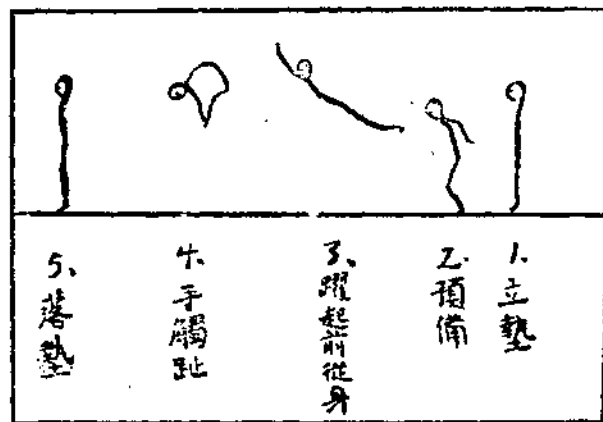 1.立墊
2.預備
3、躍起前從身
4、手觸趾
5、落墊